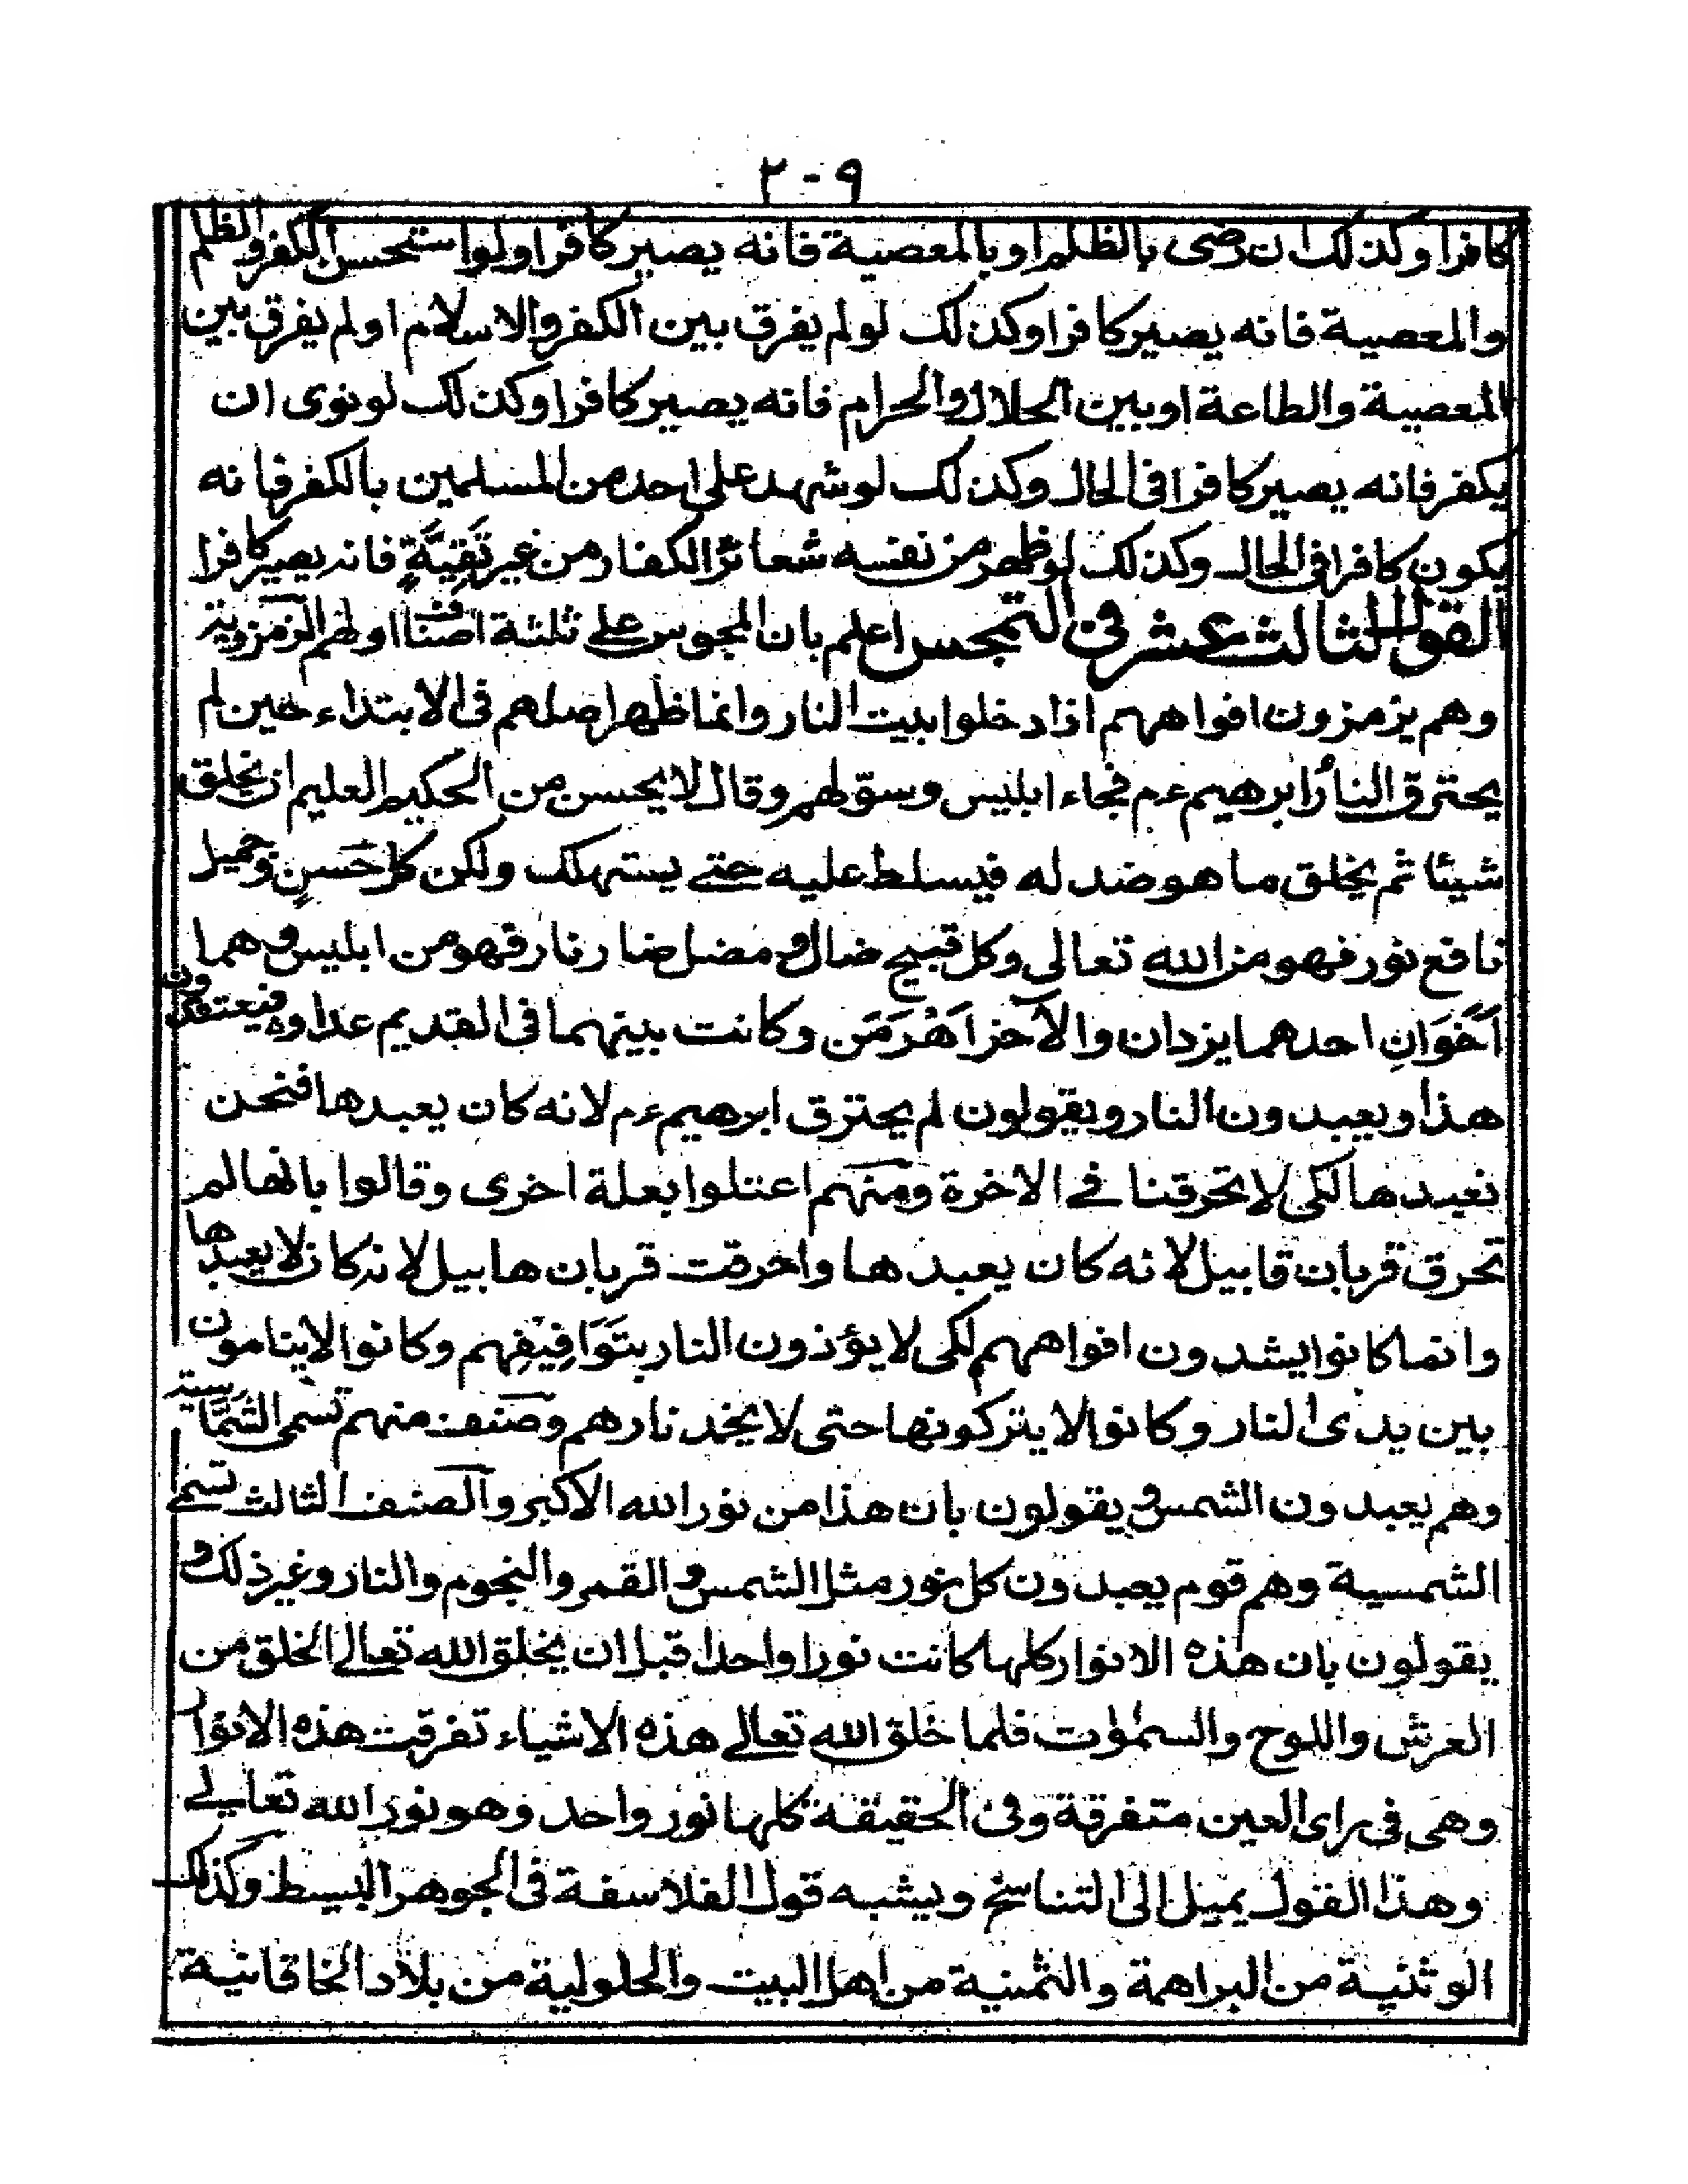 ٢٠٩
كافرا وكذلك ان رضى بالظلم او بالمعصية فانه يصير كافرا ولو استحسن الكفر والظلم
والمعصية فانه يصير كافرا وكذلك لو لم يفرق بين الكفر والاسلام او لم يفرق بين
المعصية والطاعة او بين الحلال والحرام فانه يصير كافرا وكذلك لو نوى ان
يكفر فانه يصير كافرا فى الحال وكذلك لو شهد على احد من المسلمين بالكفر فانه
يكون كافرا فى الحال وكذلك لو ظهر من نفسه شعائر الكفار من غير تَقِيَّةٍ فانه يصير كافرا
القول الثالث عشر فى التمجس اعلم بان المجوس على ثلثة اصناف اولهم الزمزوية
وهم يزمزون افواههم اذا دخلوا بيت النار وانما ظهر اصلهم فى الابتداء حين لم
يحترق النارُ ابرهيم ءم فجاء ابليس وسوّل لهم وقال لا يحسن من الحكيم العليم ان يخلق
شيئا ثم يخلق ما هو ضد له فيسلط عليه حتى يستهلك ولكن كل حَسنٍ وجميل
نافع نور فهو من الله تعالى وكل قبيح ضال ومضل ضار نار فهو من ابليس وهما
اَخَوَانِ احدهما يزدان والآخر اَهْرَمَن وكانت بينهما فى القديم عداوة فيعتقدون
هذا ويعبدون النار ويقولون لم يحترق ابرهيم ءم لانه كان يعبدها فنحن
نعبدها لكى لا تحرقنا فى الاخرة ومنهم اعتلوا بعلة اخرى وقالوا بانها لم
تحرق قربان قابيل لانه كان يعبدها واحرقت قربان هابيل لانه كان لا يعبدها
وانما كانوا يشدون افواههم لكى لا يؤذون النار بتَوَافِيْفِهم وكانوا لا ينامون
بين يدى النار وكانوا لا يتركونها حتى لا يخمد نارهم وصنف منهم تسمى الشَمَّاسية
وهم يعبدون الشمس ويقولون بان هذا من نور الله الاكبر والصنف الثالث تسمى
الشمسية وهم قوم يعبدون كل نور مثل الشمس والقمر والنجوم والنار وغير ذلك و
يقولون بان هذه الانوار كلها كانت نورا واحدا قبل ان يخلق الله تعالى الخلق من
العرش واللوح والسمٰوٰت فلما خلق الله تعالى هذه الاشياء تفرقت هذه الانوار
وهى فى راى العين متفرقة وفى الحقيقة كلها نور واحد وهو نور الله تعالى
وهذا القول يميل الى التناسخ ويشبه قول الفلاسفة فى الجوهر البسيط وكذلك
الوثنية من البراهمة والثمنية من اهل البيت والحلولية من بلاد الخاقانية